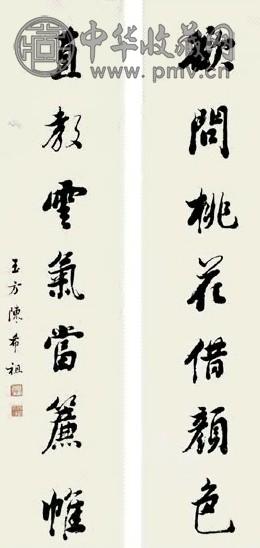 中华收藏网
www.pmv.cn
欲問桃花借顏色
直教雲氣當簾帷
玉方陳希祖